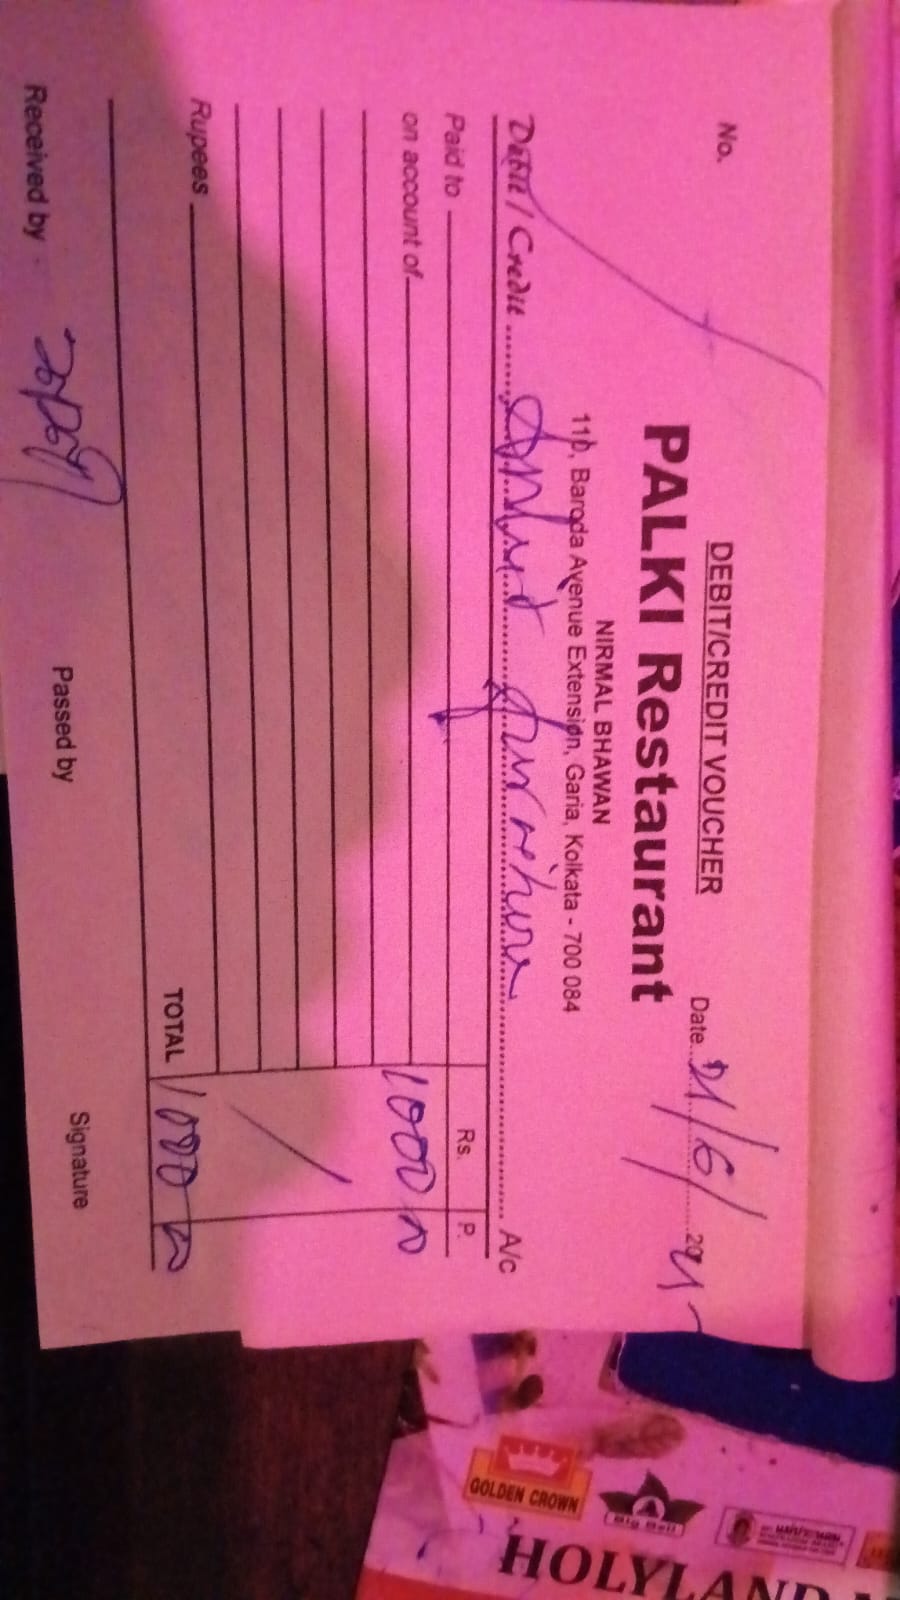 DEBIT/CREDIT VOUCHER
No.
Date 21/6/2024
PALKI Restaurant
NIRMAL BHAWAN
11b, Baroda Avenue Extension, Garia, Kolkata - 700 084
Debit / Credit A/c
Paid to Rs. P.
on account of 1000
Rupees
TOTAL 1000
Received by Passed by Signature
GOLDEN CROWN
Big Bell
HOLYLAND